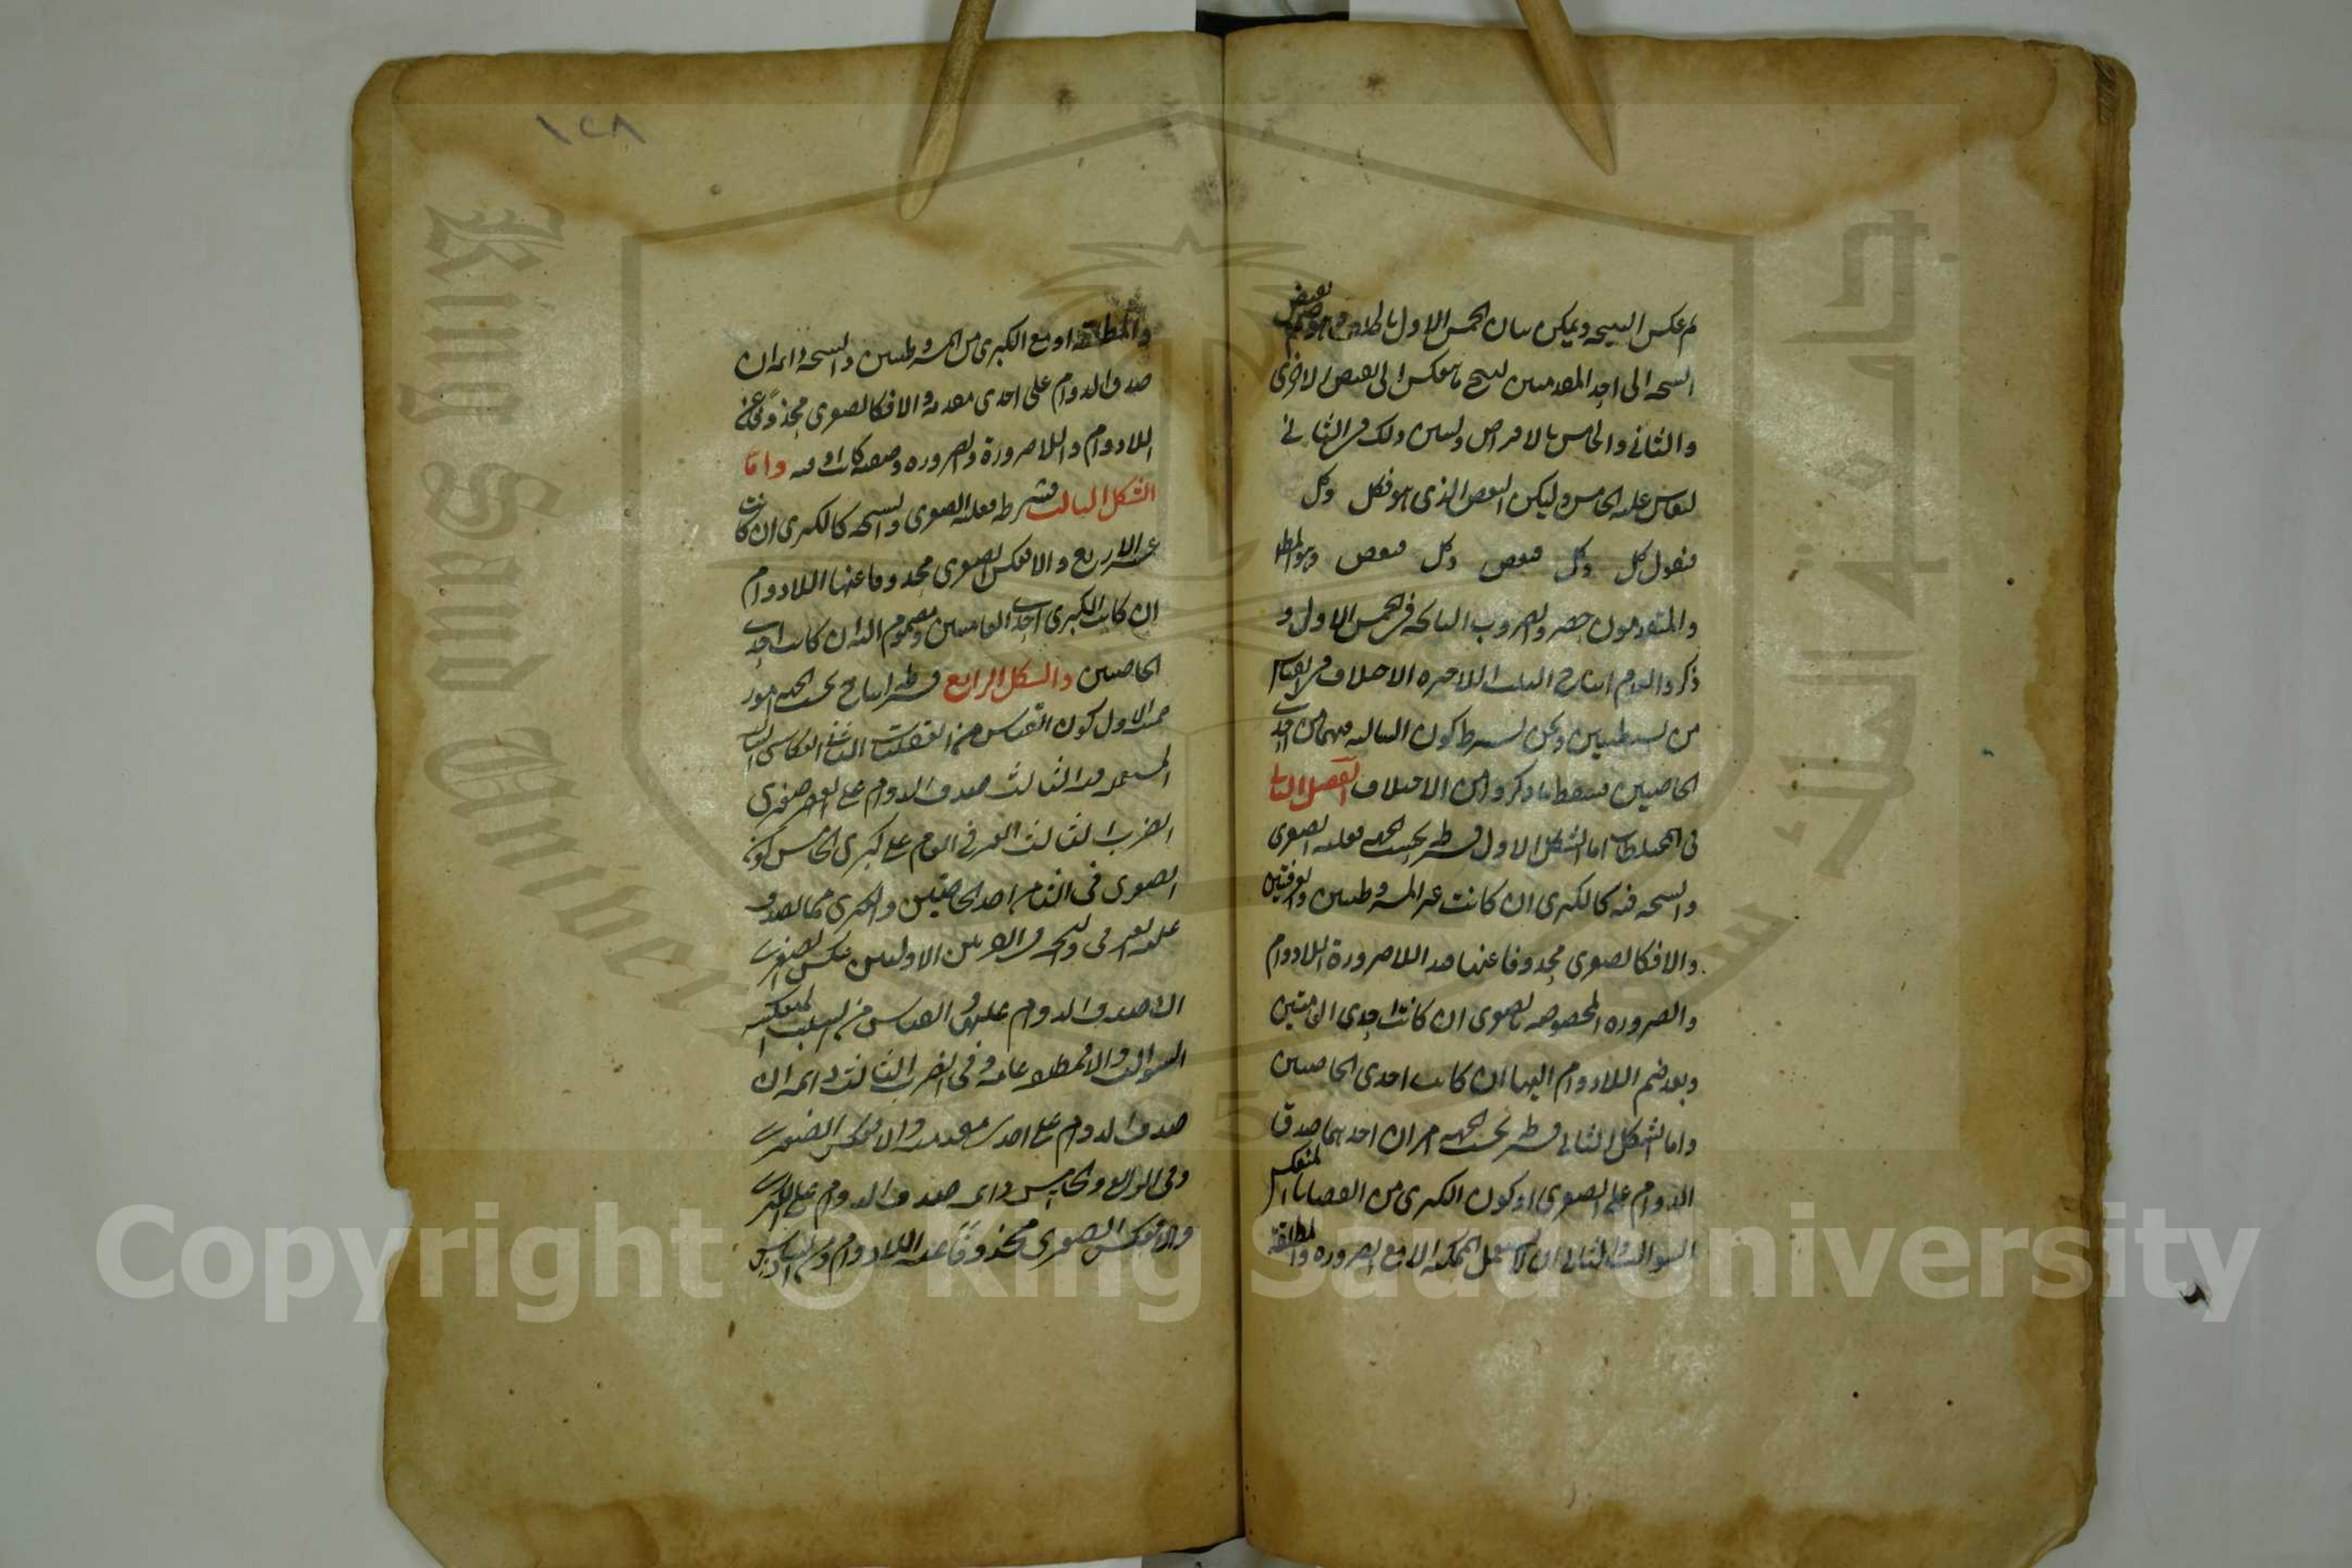 ثم عكس النتيجة ويمكن بيان الخمس الاول بالخلف وهو ضم نقيض
النتيجة الى احد المقدمتين لينتج ما ينعكس الى نقيض الاخرى
والثاني والخامس بالافتراض ولنبين ذلك في الثاني
ليقاس عليه الخامس وليكن البعض الذى هو فكل وكل
فنقول كل وكل فبعض وكل فبعض وهو المط
والمتقدمون حصروا الضروب الناتجة في الخمس الاول و
ذكروا لعدم انتاج الثلث الاخيرة الاختلاف في القياس
من بسيطتين ونحن نشترط كون السالبة فيهما من احدى
الخاصتين فسقط ما ذكروه من الاختلاف الفصل الثاني
فى المختلطات اما الشكل الاول فشرطه بحسب الجهة فعلية الصغرى
والنتيجة فيه كالكبرى ان كانت غير المشروطتين والعرفيتين
والا فكالصغرى محذوفا عنها قيد اللاضرورة اللادوام
والضرورة المخصوصة بالصغرى ان كانت احدى العامتين
وبعد ضم اللادوام اليها ان كانت احدى الخاصتين
واما الشكل الثاني فشرطه بحسب الجهة امران احدهما صدق
الدوام على الصغرى او كون الكبرى من القضايا المنعكسة
السوالب والثاني ان لا تستعمل الممكنة الا مع الضرورة والمطلقة
١٢٨
والمطلقة او مع الكبرى من المشروطتين والنتيجة دائمة ان
صدق الدوام على احدى مقدمتيه والا فكالصغرى محذوفا عنه
اللادوام واللاضرورة والضرورة وصفية كانت او وقتية واما
الشكل الثالث فشرطه فعلية الصغرى والنتيجة كالكبرى ان كانت
غير الاربع والا فعكس الصغرى محذوفا عنها اللادوام
ان كانت الكبرى احدى العامتين ومضموم اليه ان كانت احدى
الخاصتين والشكل الرابع فشرط انتاجه بحسب الجهة امور
خمسة الاول كون القياس من الفعليات الثاني انعكاس السالبة
المستعملة فيه الثالث صدق الدوام على صغرى
الضرب الثالث او العرفي العام على كبرى الخامس كون
الصغرى فى الثامن احدى الخاصتين والكبرى مما يصدق
عليه العرفى والنتيجة فى الضربين الاولين عكس الصغرى
ان صدق الدوام عليها او القياس من الست المنعكسة
السوالب والا فمطلقة عامة وفى الضرب الثالث دائمة ان
صدق الدوام على احدى مقدمتيه والا فعكس الصغرى
وفى الرابع والخامس دائمة صدق الدوام على الكبرى
والا فعكس الصغرى محذوفا عنه اللادوام وفى السادس